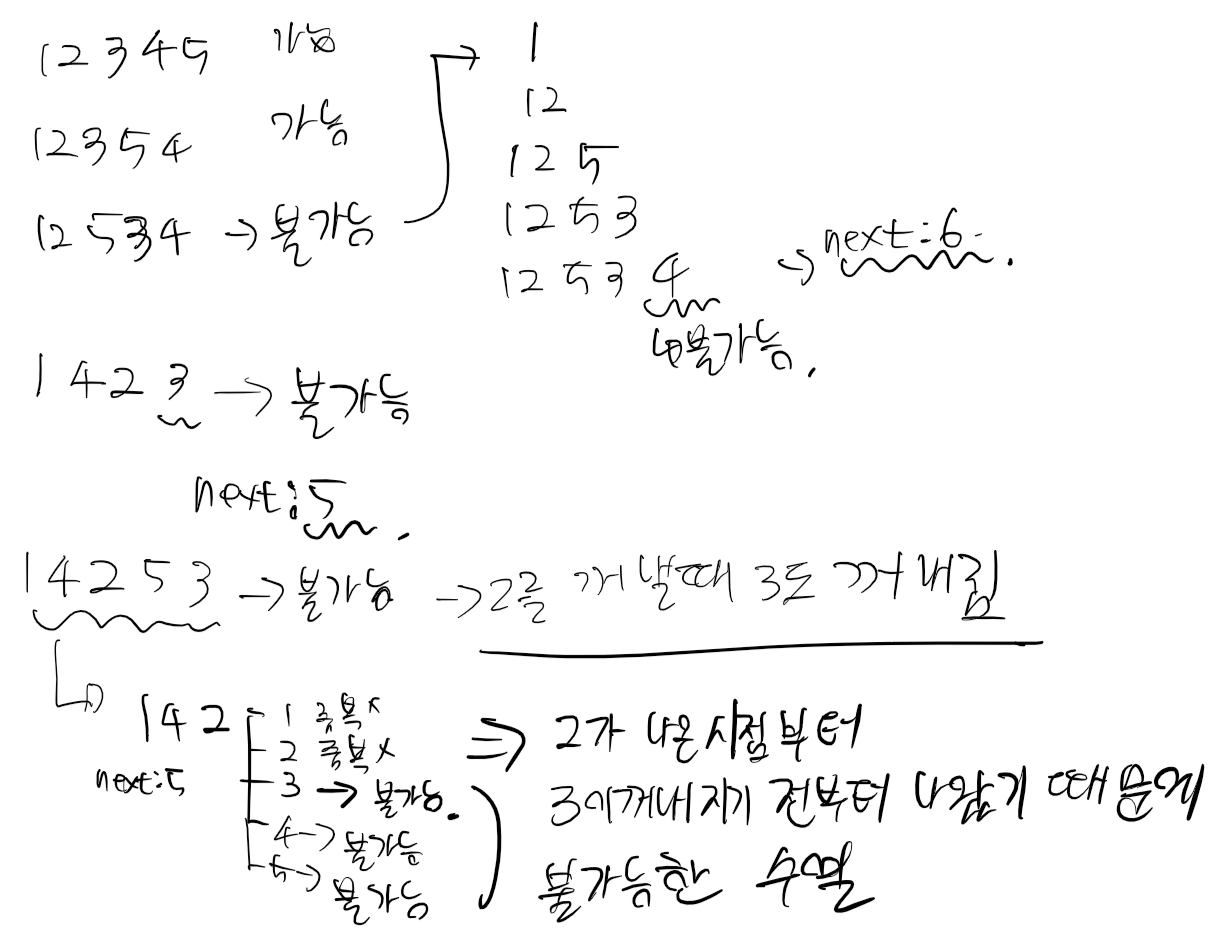 12345 가능
12354 가능
12534 → 불가능
1
12
125
1253
12534 → next:6.
불가능.
1423 → 불가능
next:5.
14253 → 불가능 → 2를 꺼낼때 3도 꺼내짐
142
next:5
1 중복x
2 중복x
3 → 불가능.
4 → 불가능
5 → 불가능
⇒ 2가 나온시점부터
3이꺼내지기 전부터 나왔기 때문에
불가능한 수열